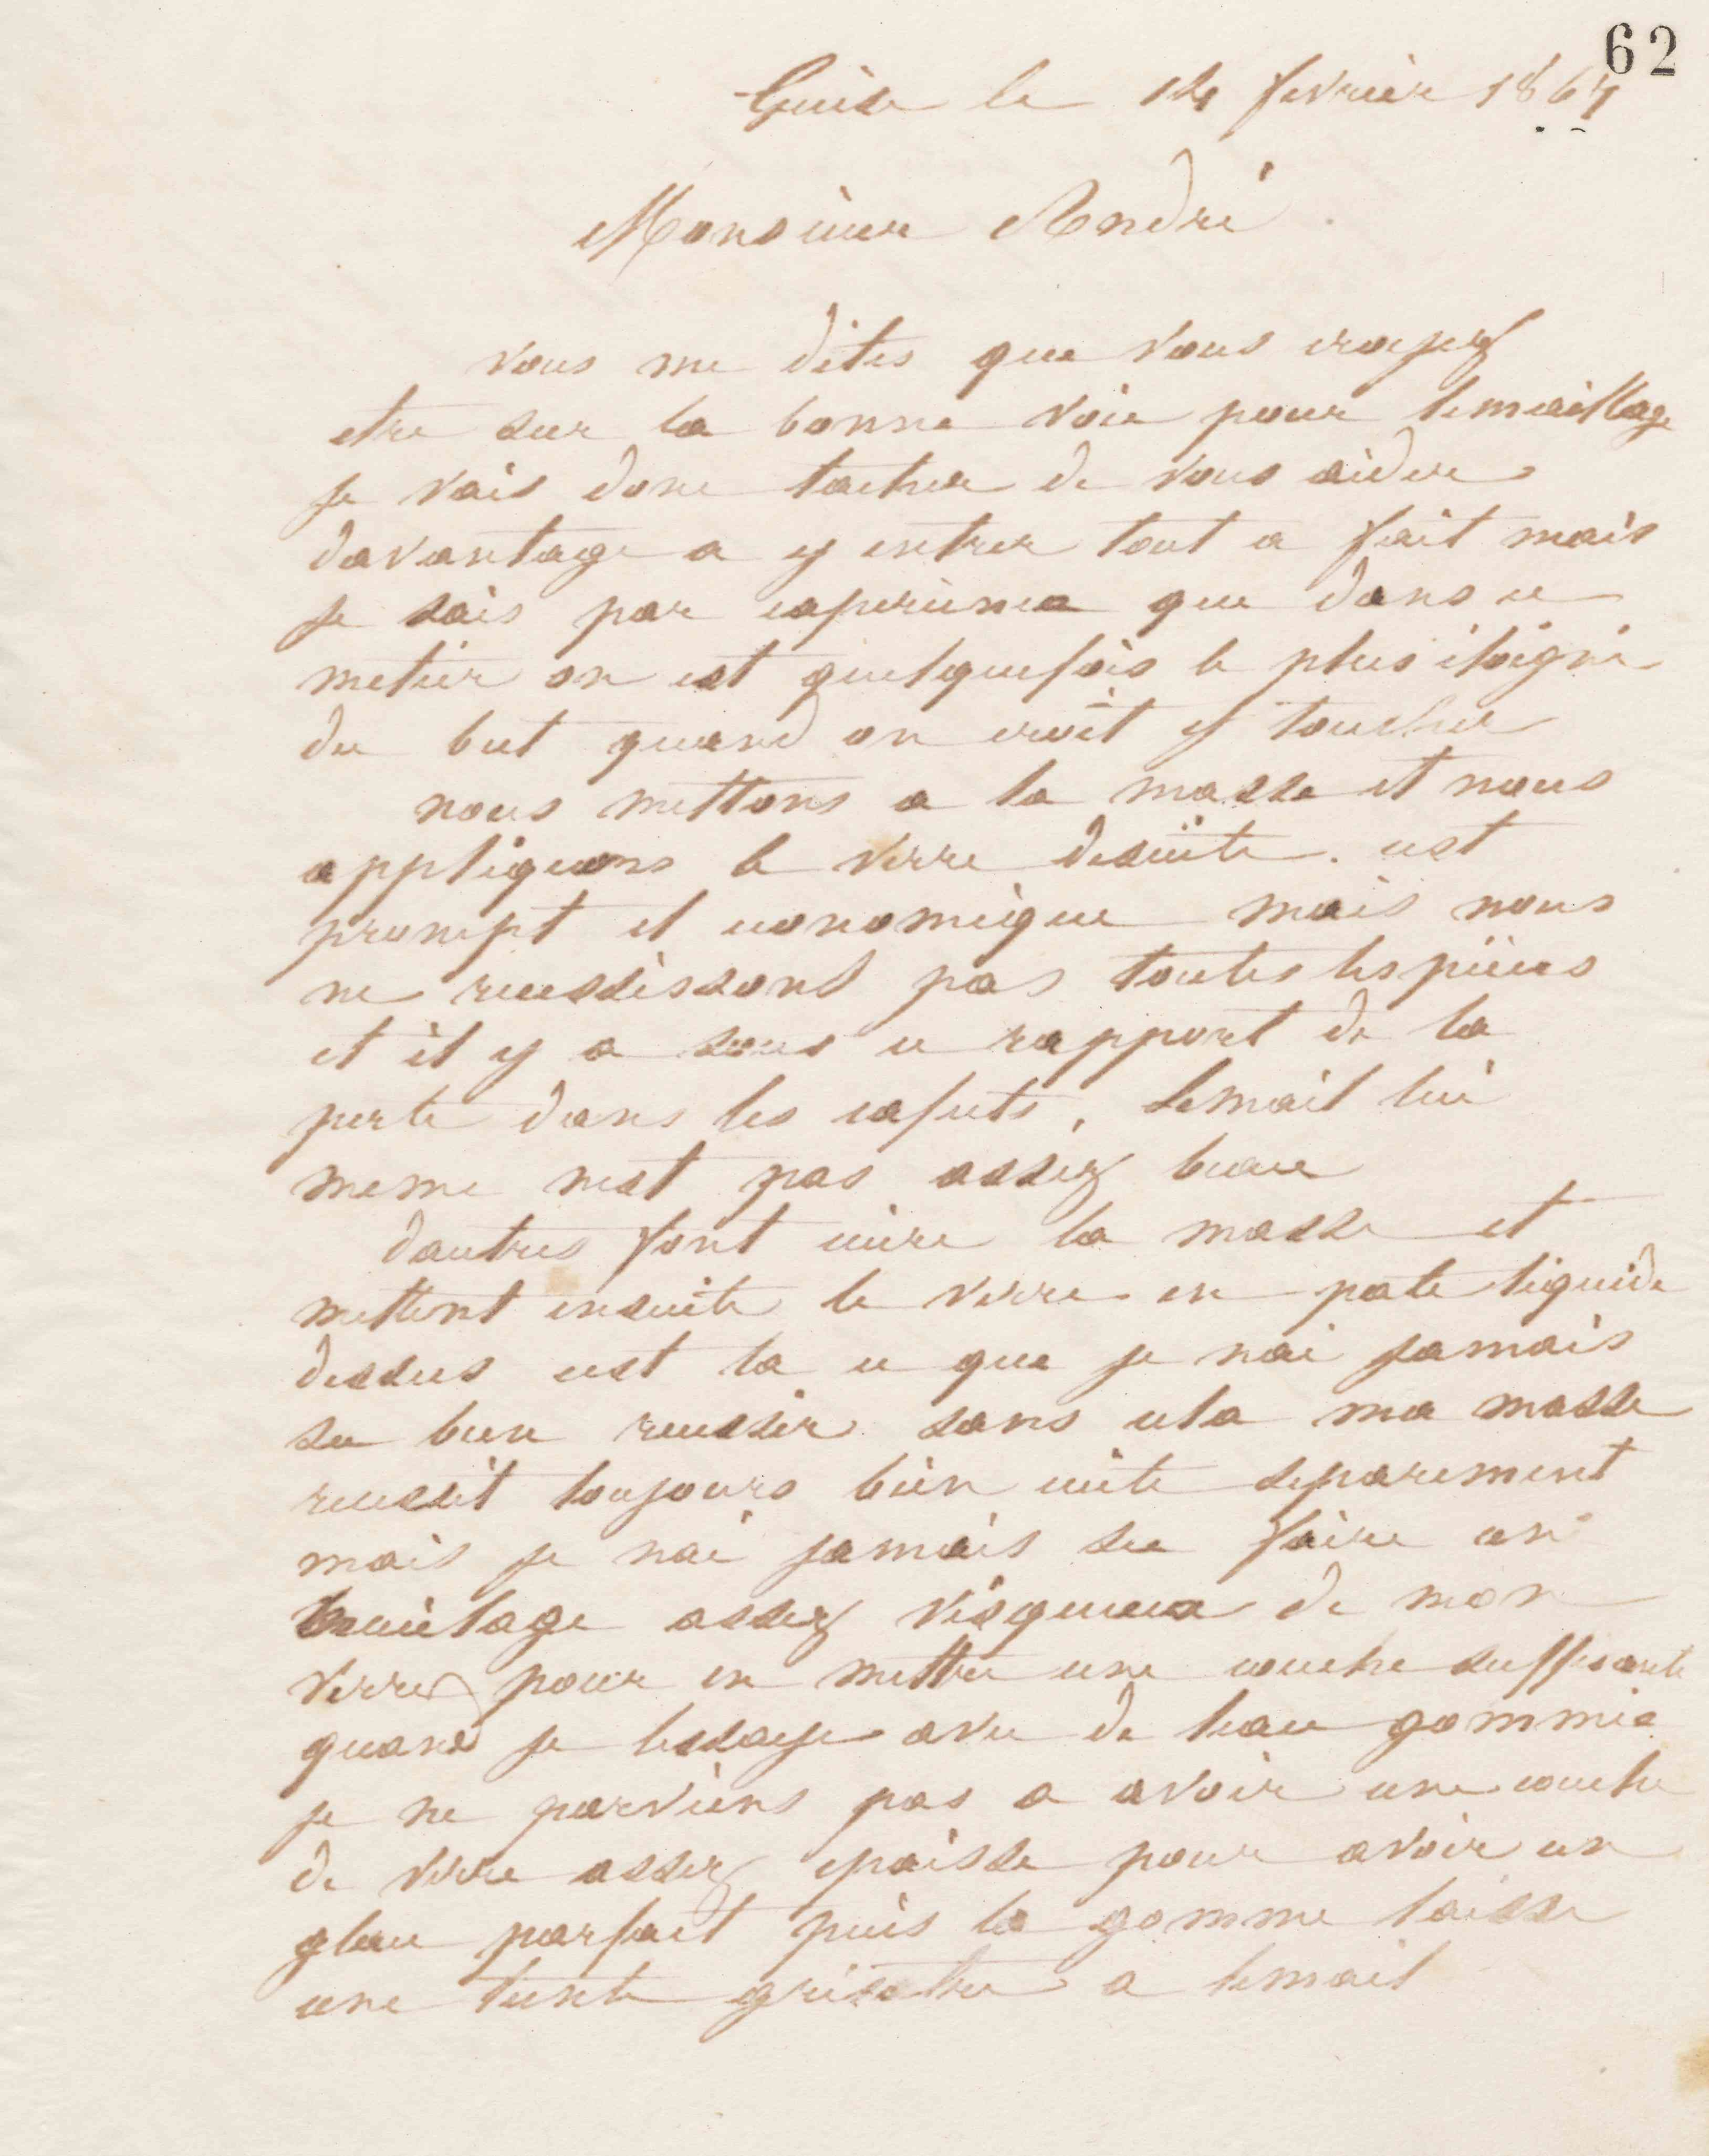 62
Guise le 14 fevrier 1864
Monsieur André
vous me dites que vous croyez
etre sur la bonne voie pour lemaillage
je vais donc tacher de vous aider
davantage a y entrer tout a fait mais
je sais par experience que dans ce
metier on est quelquefois le plus éloigné
du but quand on croit y toucher
nous mettons a la masse et nous
appliquons le verre desuite. cest
prompt et economique mais nous
ne reussissons pas toutes les pieces
et il y a sous ce rapport de la
perte dans les rebuts, Lemail lui
meme nest pas assez beau
dautres font cuire la masse et
mettent ensuite le verre en pate liquide
dessus cest la ce que je nai jamais
su bien reussir sans cela ma masse
reussit toujours bien cuite separement
mais je nai jamais su faire un
mucilage assez visqueux de mon
verre pour en mettre une couche suffisante
quand je lessaye avec de leau gommée
je ne parviens pas a avoir une couche
de verre assez epaisse pour avoir un
glacé parfait puis la gomme laisse
une teinte grisatre a lemail